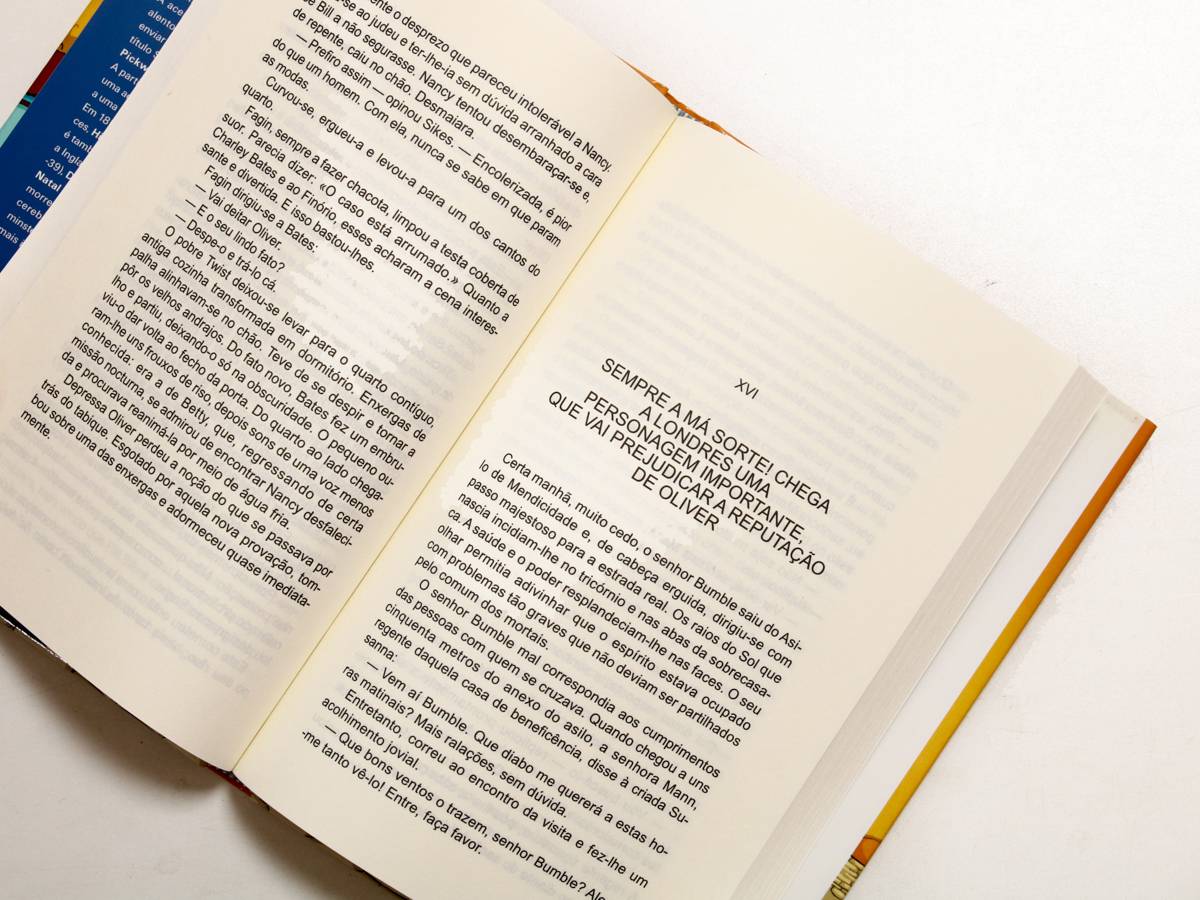 A ace
alento
enviar
título s
Pickw
A part
uma a
a uma
Em 18
ces, H
é tamb
a Ingla
-39), D
Natal
morre
cereb
minst
mais
ente o desprezo que pareceu intolerável a Nancy.
-se ao judeu e ter-lhe-ia sem dúvida arranhado a cara
se Bill a não segurasse. Nancy tentou desembaraçar-se e,
de repente, caiu no chão. Desmaiara.
— Prefiro assim — opinou Sikes. — Encolerizada, é pior
do que um homem. Com ela, nunca se sabe em que param
as modas.
Curvou-se, ergueu-a e levou-a para um dos cantos do
quarto.
Fagin, sempre a fazer chacota, limpou a testa coberta de
suor. Parecia dizer: «O caso está arrumado.» Quanto a
Charley Bates e ao Finório, esses acharam a cena interes-
sante e divertida. E isso bastou-lhes.
Fagin dirigiu-se a Bates:
— Vai deitar Oliver.
— E o seu lindo fato?
— Despe-o e trá-lo cá.
O pobre Twist deixou-se levar para o quarto contíguo,
antiga cozinha transformada em dormitório. Enxergas de
palha alinhavam-se no chão. Teve de se despir e tornar a
pôr os velhos andrajos. Do fato novo, Bates fez um embru-
lho e partiu, deixando-o só na obscuridade. O pequeno ou-
viu-o dar volta ao fecho da porta. Do quarto ao lado chega-
ram-lhe uns frouxos de riso, depois sons de uma voz menos
conhecida: era a de Betty, que, regressando de certa
missão nocturna, se admirou de encontrar Nancy desfaleci-
da e procurava reanimá-la por meio de água fria.
Depressa Oliver perdeu a noção do que se passava por
trás do tabique. Esgotado por aquela nova provação, tom-
bou sobre uma das enxergas e adormeceu quase imediata-
mente.
XVI
SEMPRE A MÁ SORTE! CHEGA
A LONDRES UMA
PERSONAGEM IMPORTANTE,
QUE VAI PREJUDICAR A REPUTAÇÃO
DE OLIVER
Certa manhã, muito cedo, o senhor Bumble saiu do Asi-
lo de Mendicidade e, de cabeça erguida, dirigiu-se com
passo majestoso para a estrada real. Os raios do Sol que
nascia incidiam-lhe no tricórnio e nas abas da sobrecasa-
ca. A saúde e o poder resplandeciam-lhe nas faces. O seu
olhar permitia adivinhar que o espírito estava ocupado
com problemas tão graves que não deviam ser partilhados
pelo comum dos mortais.
O senhor Bumble mal correspondia aos cumprimentos
das pessoas com quem se cruzava. Quando chegou a uns
cinquenta metros do anexo do asilo, a senhora Mann,
regente daquela casa de beneficência, disse à criada Su-
sanna:
— Vem aí Bumble. Que diabo me quererá a estas ho-
ras matinais? Mais ralações, sem dúvida.
Entretanto, correu ao encontro da visita e fez-lhe um
acolhimento jovial.
— Que bons ventos o trazem, senhor Bumble? Ale
-me tanto vê-lo! Entre, faça favor.